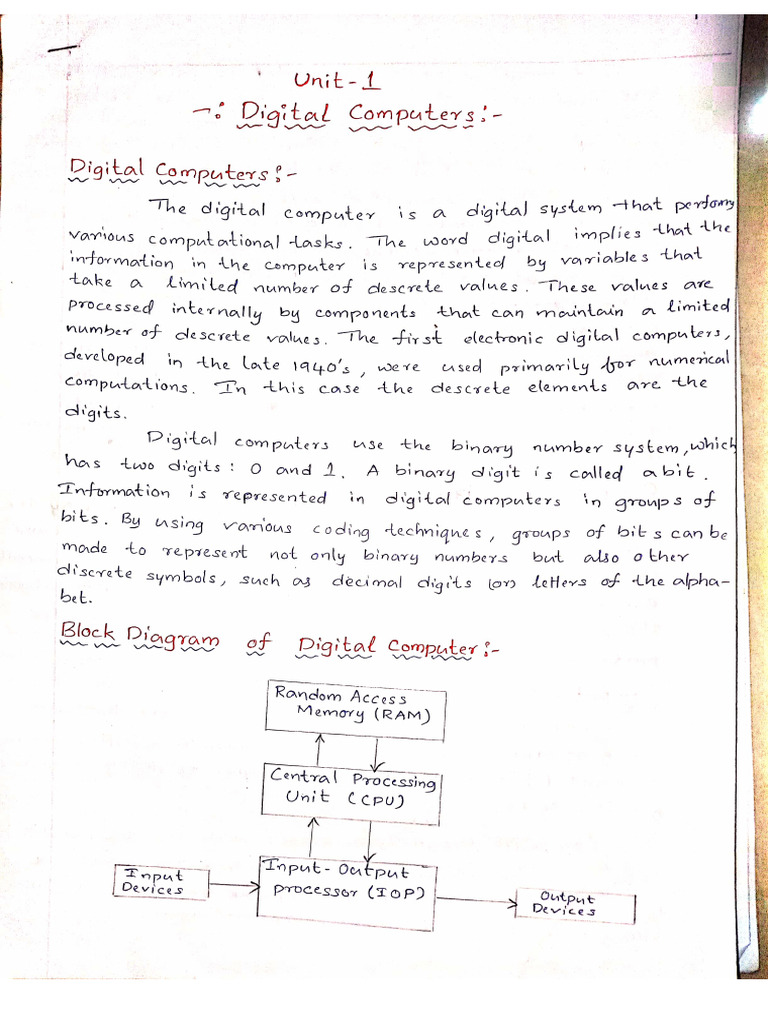 Unit-1
-: Digital Computers:-
Digital Computers:-
The digital computer is a digital system that performs
various computational tasks. The word digital implies that the
information in the computer is represented by variables that
take a limited number of descrete values. These values are
processed internally by components that can maintain a limited
number of descrete values. The first electronic digital computers,
developed in the late 1940's, were used primarily for numerical
computations. In this case the descrete elements are the
digits.
Digital computers use the binary number system, which
has two digits: 0 and 1. A binary digit is called a bit.
Information is represented in digital computers in groups of
bits. By using various coding techniques, groups of bits can be
made to represent not only binary numbers but also other
discrete symbols, such as decimal digits (or) letters of the alpha-
bet.
Block Diagram of Digital Computer:-
Random Access
Memory (RAM)
Central Processing
Unit (CPU)
Input-Output
processor (IOP)
Input
Devices
Output
Devices